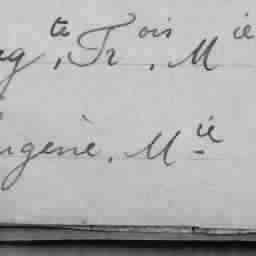 ug^te, Fr^ois, M^ie
ugène, M^ie